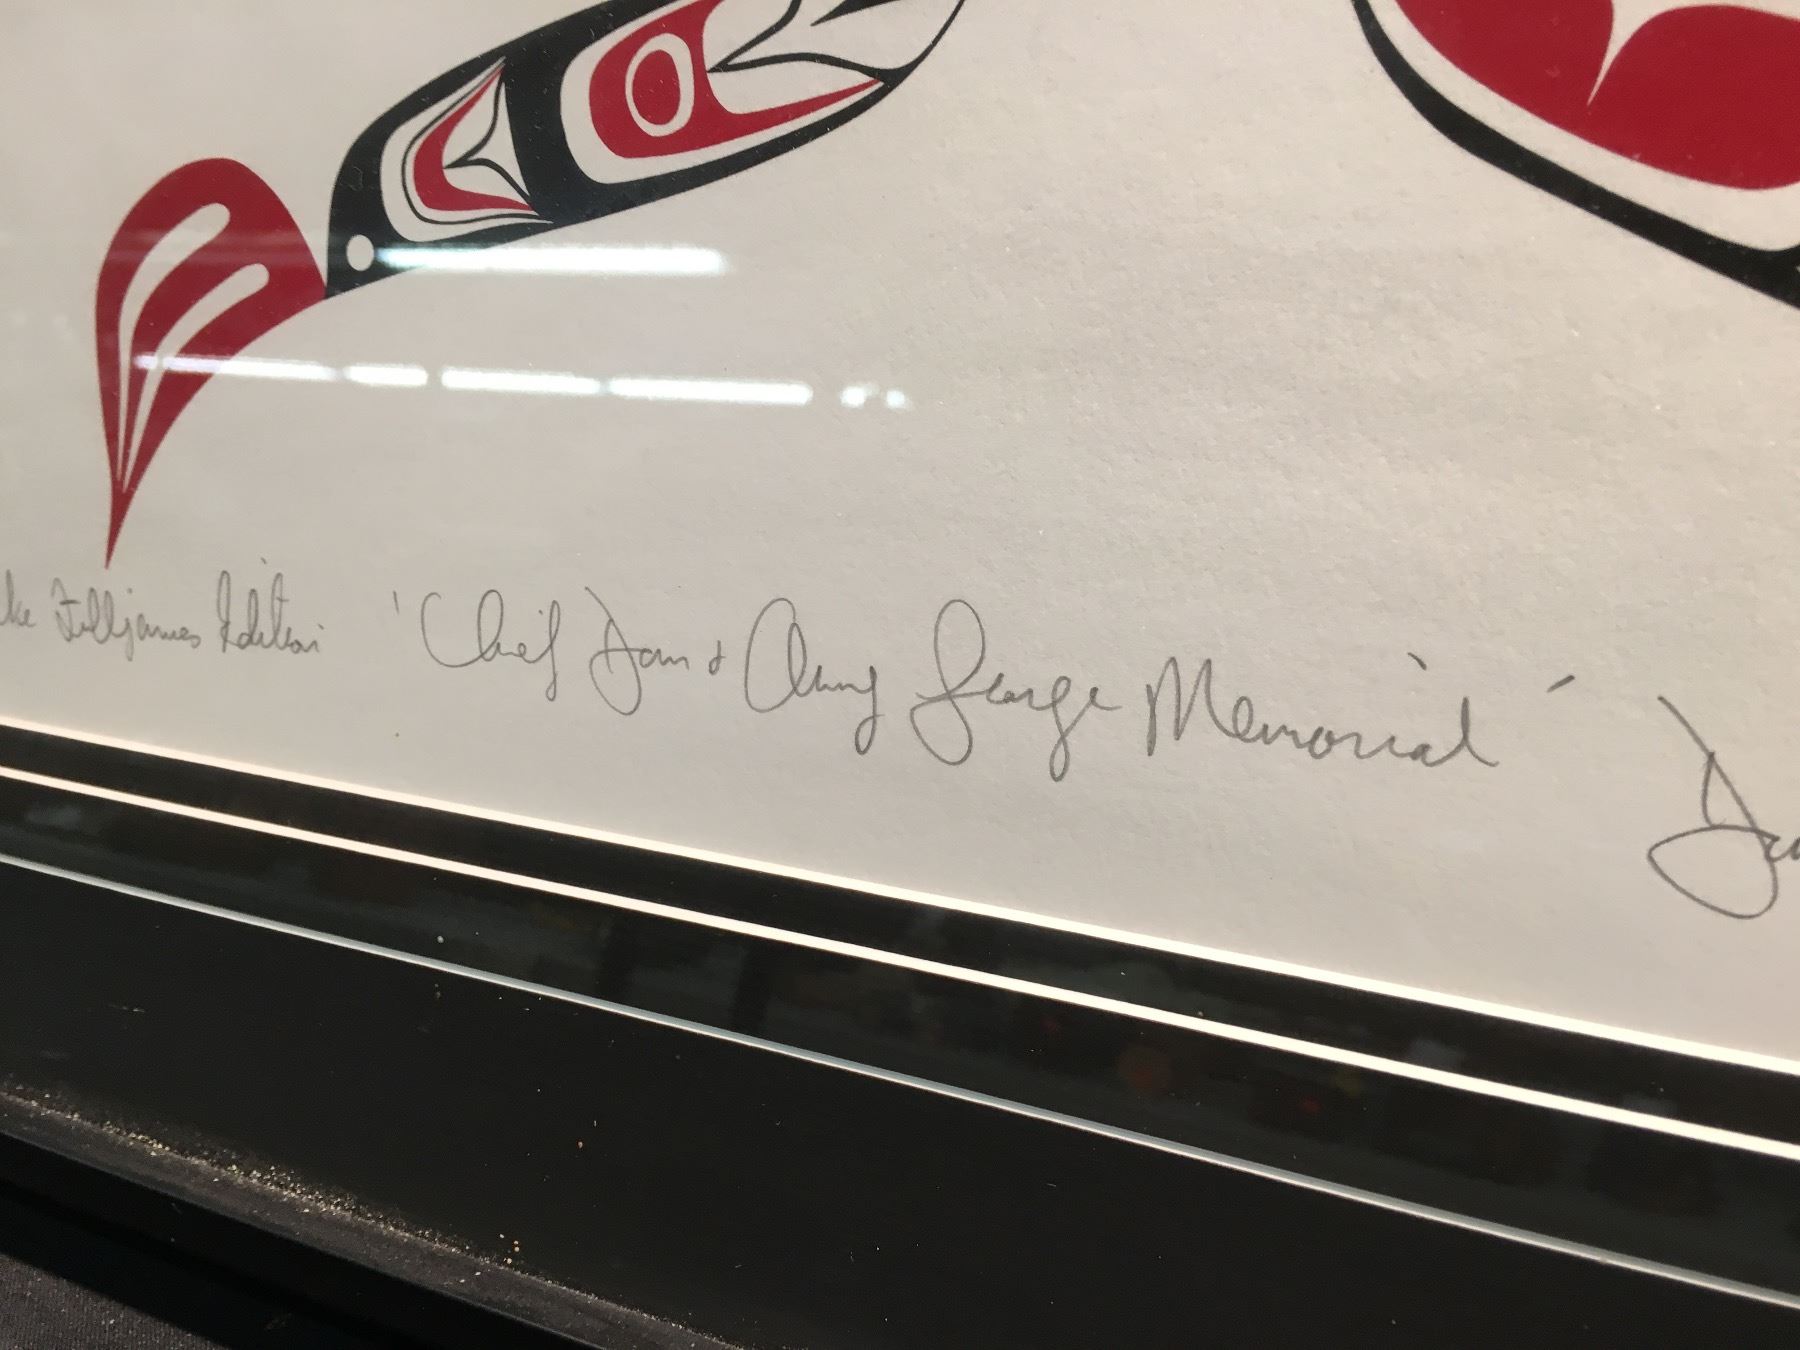 Filljames Edition 'Chief Dan & Amy George Memorial'